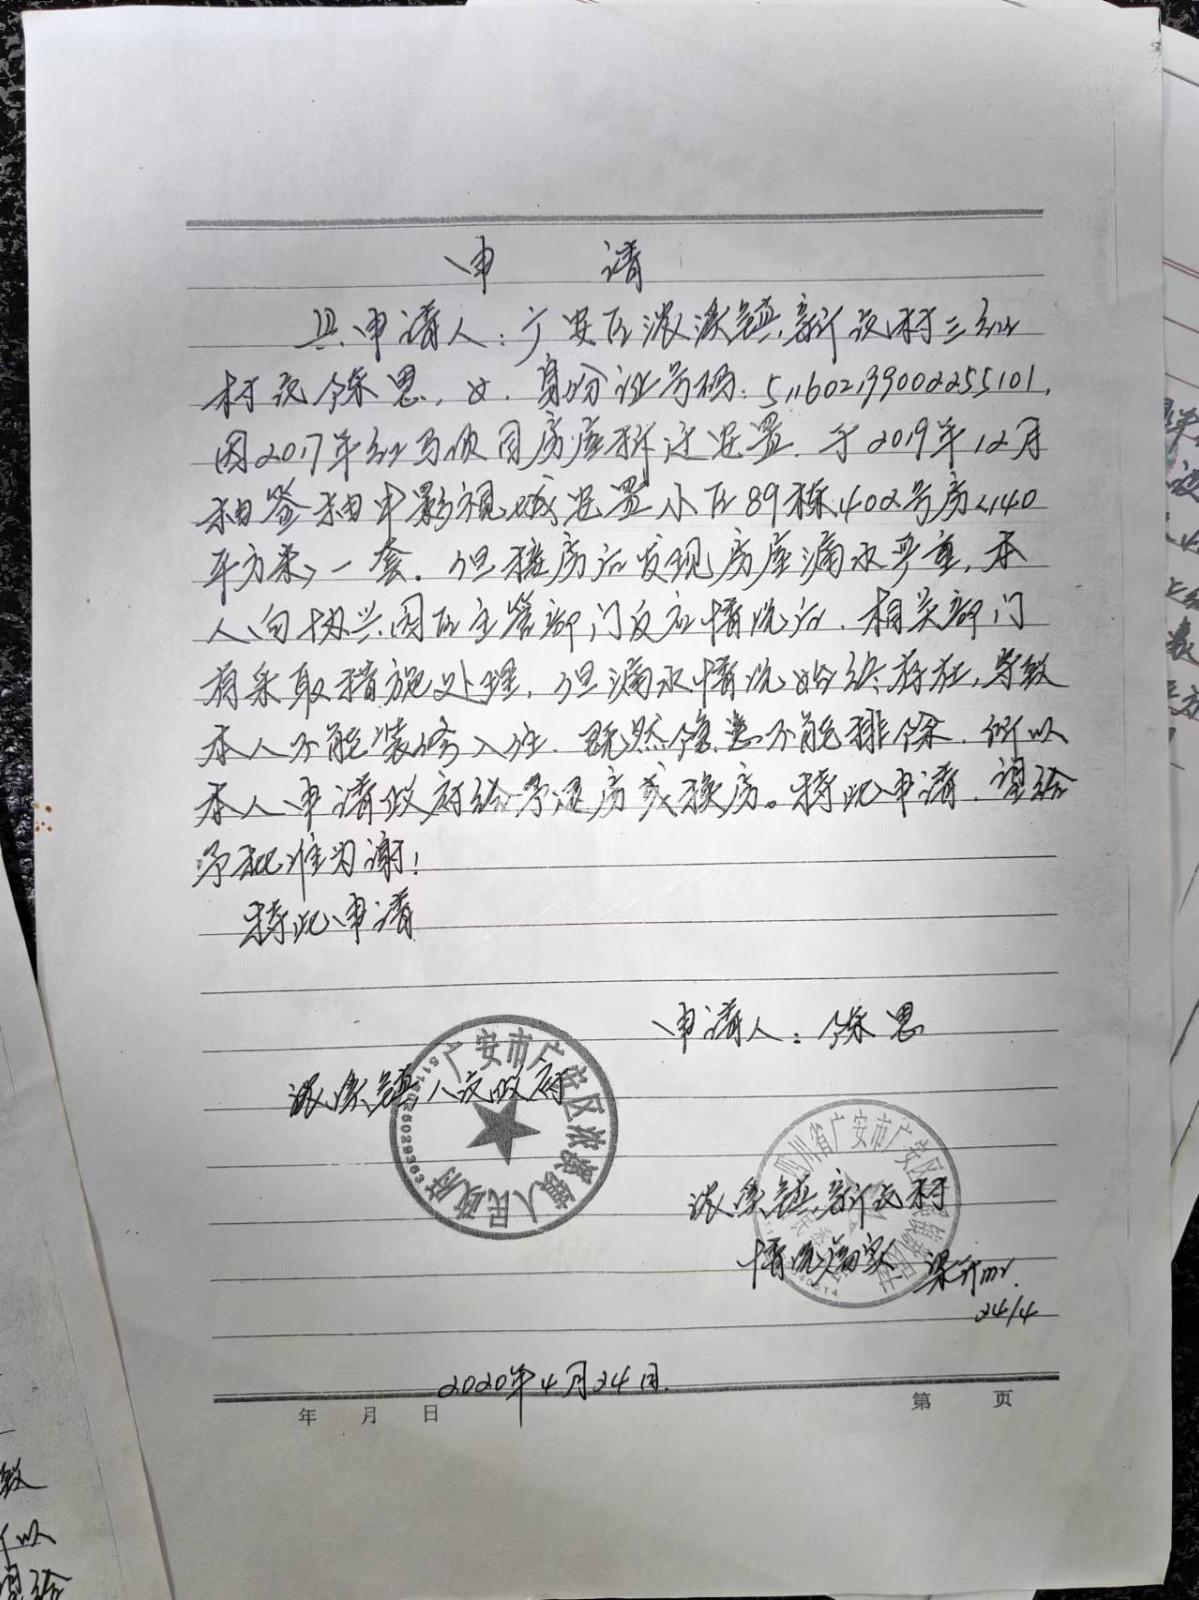 申 请
具申请人：广安区浓溪镇新计议村三组
村民徐思，女，身份证号码：511602199002255101，
因2017年红马伙同房屋拆迁安置，于2019年12月
抽签抽中影视城安置小区89栋402号房（140
平方米）一套。但接房后发现房屋漏水严重，本
人向协兴园区主管部门反应情况后，相关部门
有采取措施处理，但漏水情况始终存在，导致
本人不能装修入住，既然隐患不能排除，所以
本人申请政府给予退房或换房。特此申请，望给
予批准为谢！
特此申请
申请人：徐思
浓溪镇人民政府
广安市广安区浓溪镇人民政府
四川省广安市广安区
浓溪镇新 民村
情况属实
24/4
2020年4月24日.
年 月 日
第 页